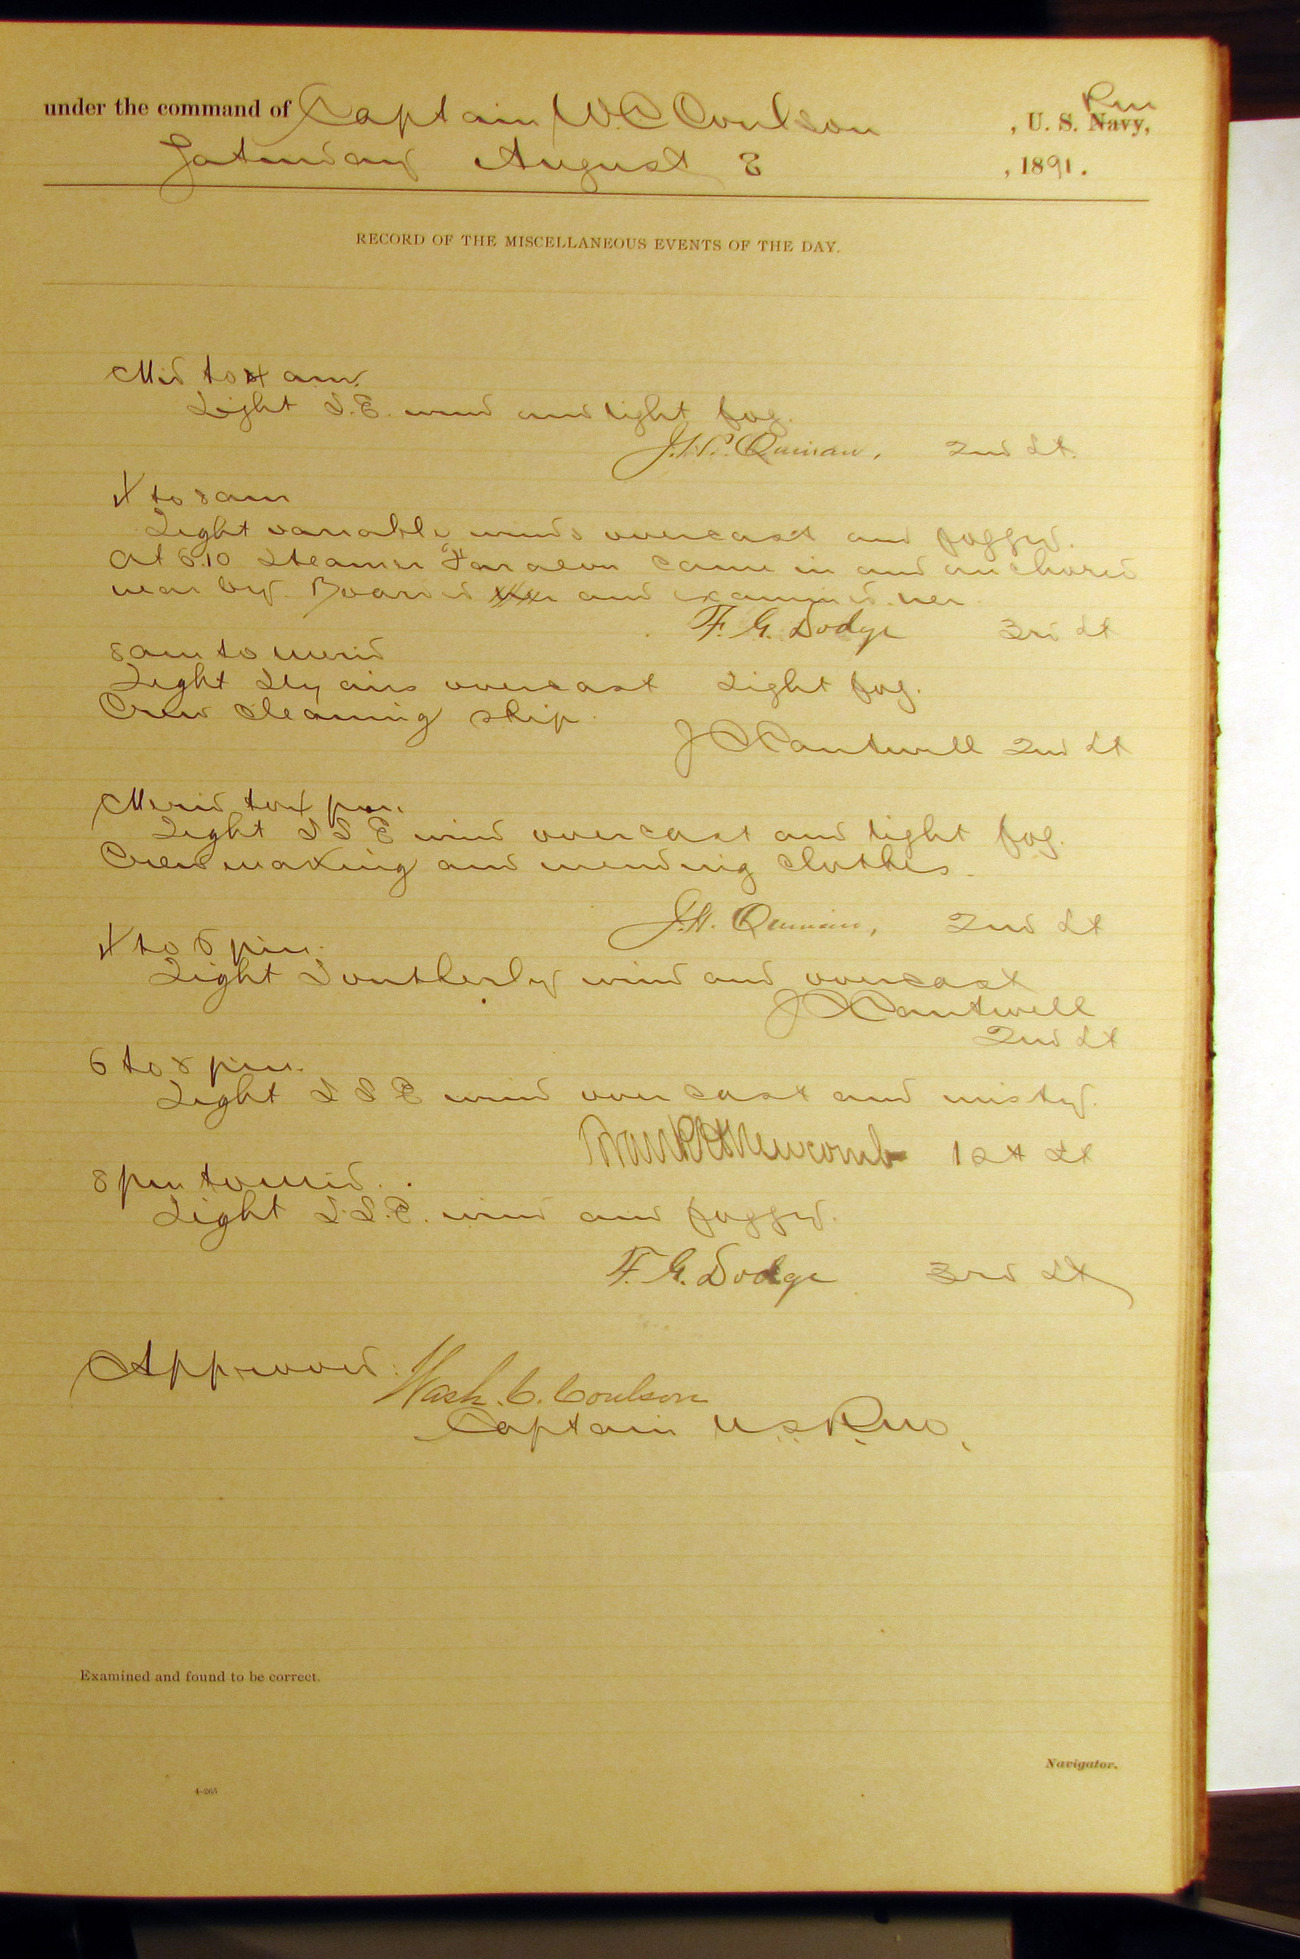 under the command of Captain W. C. Coulson Rm , U. S. Navy,
Saturday August 8 , 1891.
RECORD OF THE MISCELLANEOUS EVENTS OF THE DAY.
Mid to 4 am
Light S.E. wind and light fog.
J.H. Quinan, 2nd Lt.
4 to 8 am
Light variable winds overcast and foggy.
At 6.10 Steamer Farallon came in and anchored
near by. Boarded and examined her.
F. G. Dodge 3rd Lt
8 am to merid
Light Sly airs overcast Light fog.
Crew cleaning ship.
J C Cantwell 2nd Lt
Merid to 4 pm.
Light S S E wind overcast and light fog.
Crew making and mending clothes.
J.H. Quinan, 2nd Lt
4 to 6 pm.
Light Southerly wind and overcast
J C Cantwell
2nd Lt
6 to 8 pm.
Light S S E wind overcast and misty.
Frank H Newcomb 1st Lt
8 pm to mid.
Light S.S.E. wind and foggy.
F. G. Dodge 3rd Lt
Approved:
Wash. C. Coulson
Captain U.S.R.M.
Examined and found to be correct.
Navigator.
4-265